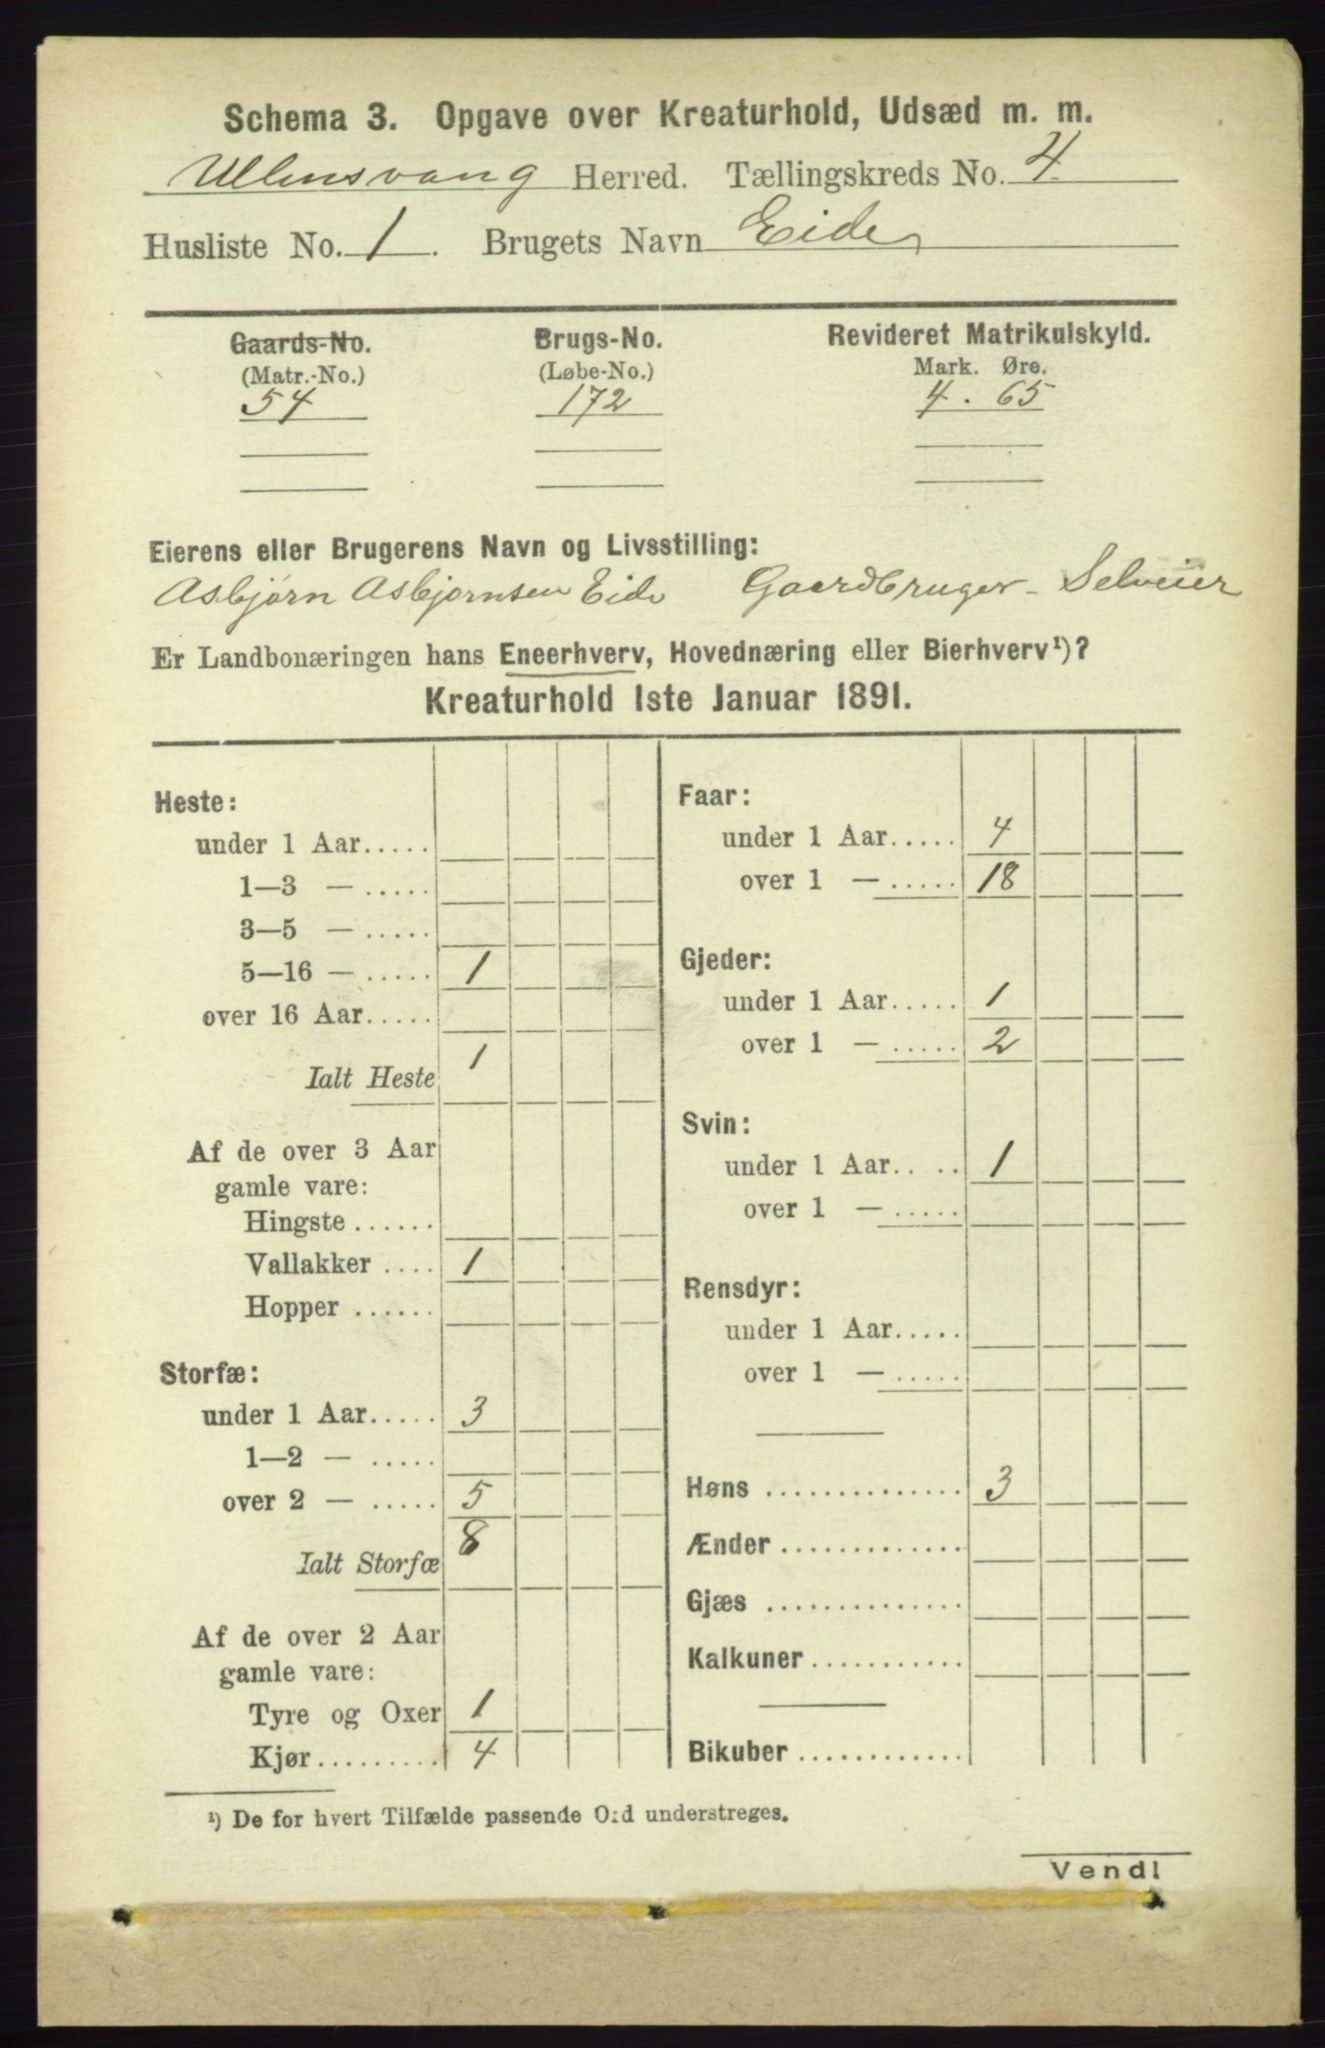 Schema 3. Opgave over Kreaturhold, Udsæd m. m.
Ullensvang Herred. Tællingskreds No. 4.
Husliste No. 1. Brugets Navn Eide
Gaards-No. Brugs-No. Revideret Matrikulskyld.
(Matr.-No.) (Løbe-No.) Mark. Øre.
54 172 4. 65
Eierens eller Brugerens Navn og Livsstilling:
Asbjørn Asbjørnsen Eide Gaardbruger - Selveier
Er Landbonæringen hans Eneerhverv, Hovednæring eller Bierhverv¹)?
Kreaturhold 1ste Januar 1891.
Heste:
under 1 Aar.....
1—3 — .....
3—5 — .....
5—16 — ..... 1
over 16 Aar.....
Ialt Heste 1
Af de over 3 Aar
gamle vare:
Hingste ......
Vallakker .... 1
Hopper ......
Storfæ:
under 1 Aar..... 3
1—2 — .....
over 2 — ..... 5
Ialt Storfæ 8
Af de over 2 Aar
gamle vare:
Tyre og Oxer 1
Kjør.......... 4
Faar:
under 1 Aar..... 4
over 1 — ..... 18
Gjeder:
under 1 Aar..... 1
over 1 — ..... 2
Svin:
under 1 Aar..... 1
over 1 — .....
Rensdyr:
under 1 Aar.....
over 1 — .....
Høns .............. 3
Ænder .............
Gjæs ..............
Kalkuner...........
Bikuber ............
¹) De for hvert Tilfælde passende Ord understreges.
Vend!